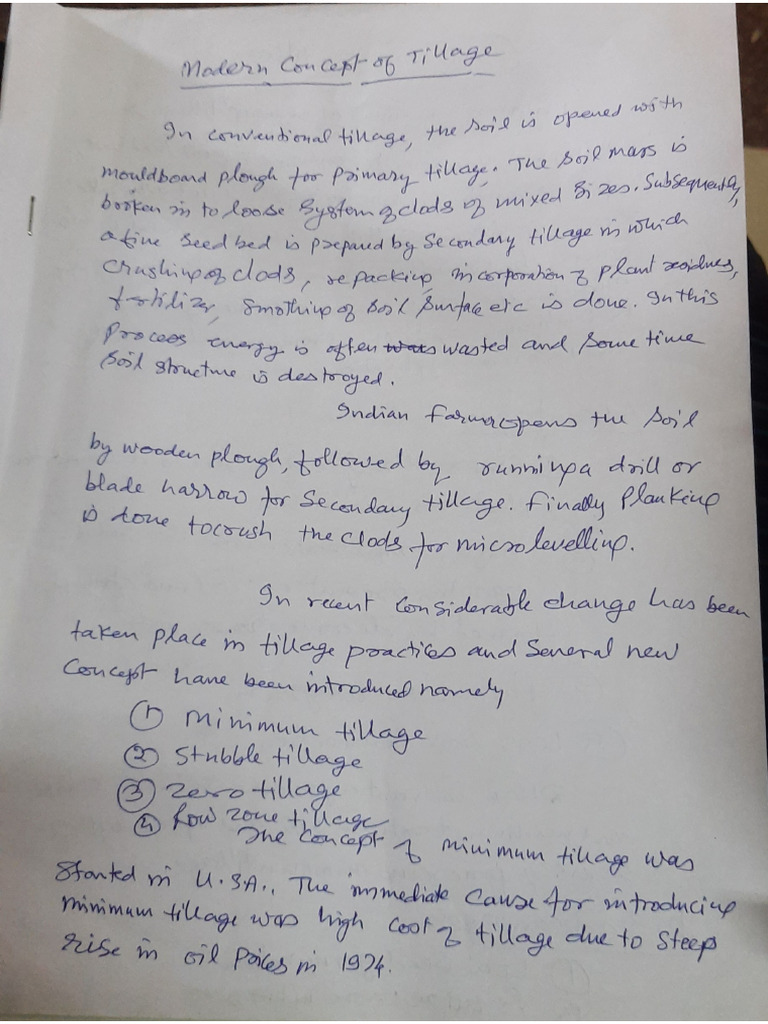 Modern Concept of Tillage
In conventional tillage, the soil is opened with
mouldboard plough for primary tillage. The soil mass is
broken in to loose system of clods of mixed sizes. Subsequently,
a fine seed bed is prepared by secondary tillage in which
crushing of clods, repacking, incorporation of plant residues,
fertilizer, smothing of soil surface etc is done. In this
process energy is often wasted and some time
soil structure is destroyed.
Indian farmer opens the soil
by wooden plough, followed by running a drill or
blade harrow for secondary tillage. Finally Planking
is done to crush the clods for micro levelling.
In recent considerable change has been
taken place in tillage practices and several new
concept have been introduced namely
① minimum tillage
② Stubble tillage
③ Zero tillage
④ Row zone tillage
The concept of minimum tillage was
started in U.S.A.. The immediate cause for introducing
minimum tillage was high cost of tillage due to steep
rise in oil prices in 1974.